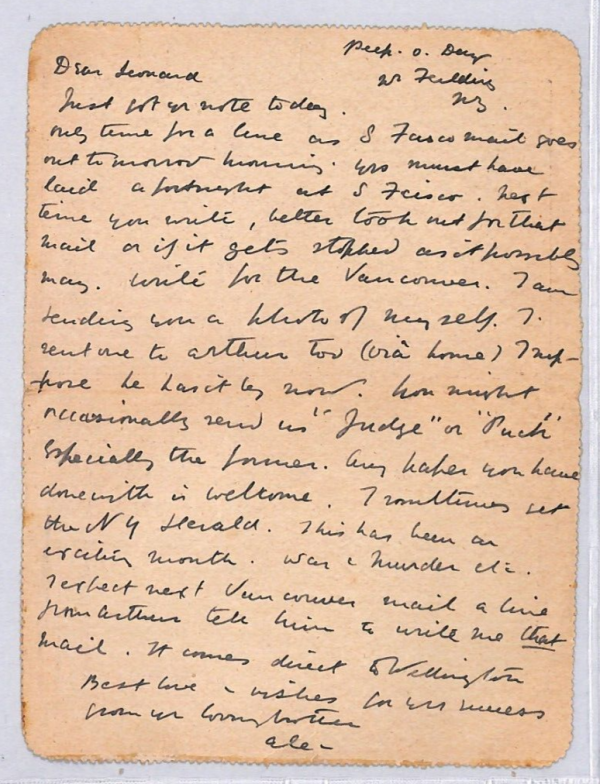 Peep. o. Day
Dear Leonard
nr Feilding
NZ.
Just got yr note today.
only time for a line as S Fzisco mail goes
out tomorrow morning. yrs must have
laid a fortnight at S Fzisco. next
time you write, better look out for that
mail or if it gets stopped as it possibly
may. write for the Vancouver. I am
sending you a photo of myself. I
sent one to arthur too (viâ home) I sup-
pose he has it by now. You might
occasionally send us "Judge" or "Puck"
Especially the former. Any paper you have
done with is welcome. I sometimes get
the NY Herald. This has been an
exciting month. War & Murder etc.
I expect next Vancouver mail a line
from arthur tell him to write me that
mail. It comes direct to Wellington
Best love & wishes for yrs success
from yr loving brother